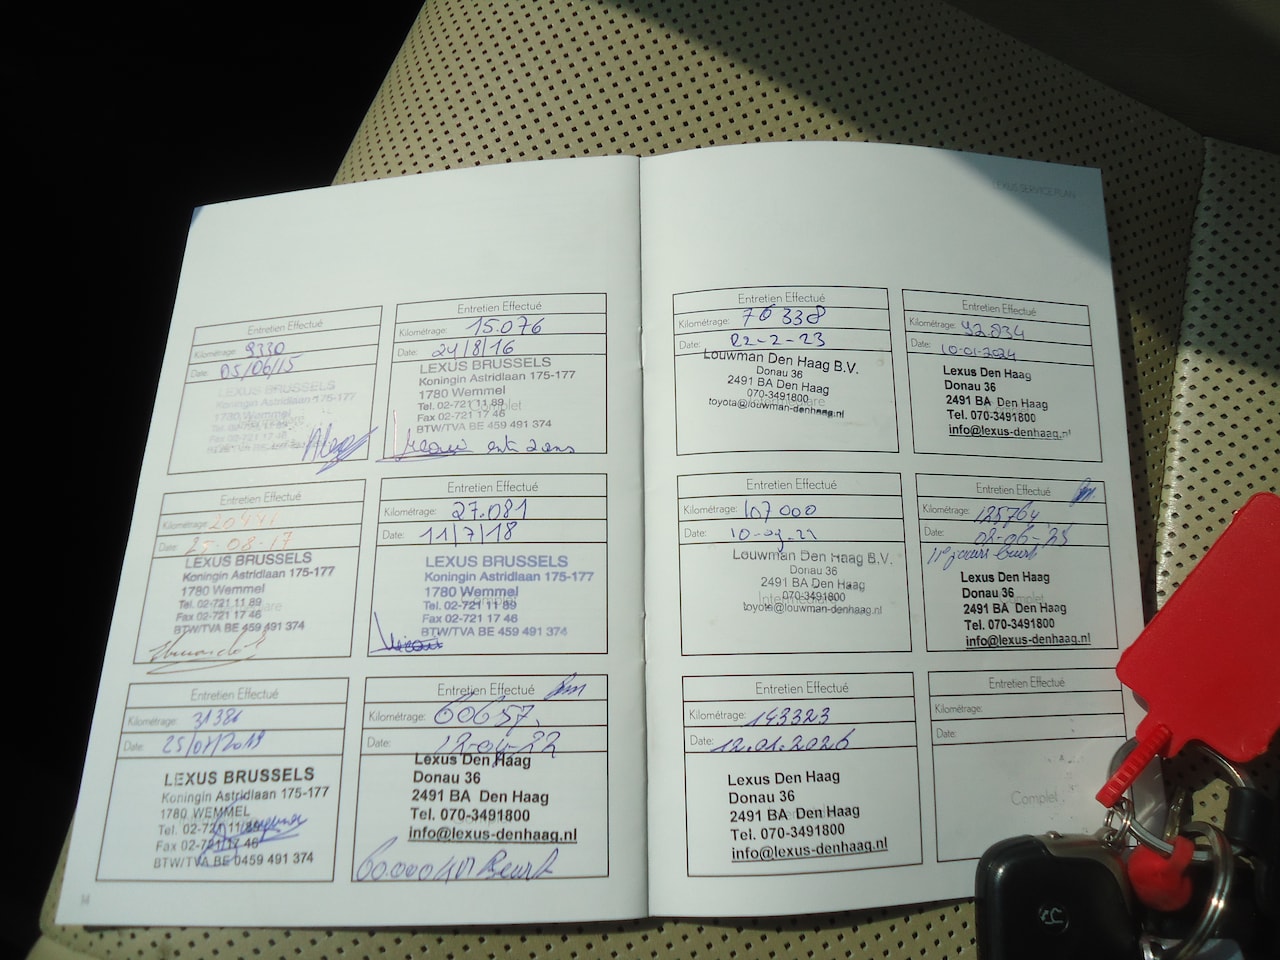 LEXUS SERVICE PLAN
Entretien Effectué
Kilométrage: 9330
Date: 05/06/15
LEXUS BRUSSELS
Koningin Astridlaan 175-177
1780 Wemmel
Tel. 02-721 11 89
Fax 02-721 17 46
Entretien Effectué
Kilométrage: 15.076
Date: 24/8/16
LEXUS BRUSSELS
Koningin Astridlaan 175-177
1780 Wemmel
Tel. 02-721 11 89
Fax 02-721 17 46
BTW/TVA BE 459 491 374
Entretien Effectué
Kilométrage:
Date: 25-08-17
LEXUS BRUSSELS
Koningin Astridlaan 175-177
1780 Wemmel
Tel. 02-721 11 89
Fax 02-721 17 46
BTW/TVA BE 459 491 374
Entretien Effectué
Kilométrage: 27.081
Date: 11/7/18
LEXUS BRUSSELS
Koningin Astridlaan 175-177
1780 Wemmel
Tel. 02-721 11 89
Fax 02-721 17 46
BTW/TVA BE 459 491 374
Entretien Effectué
Kilométrage: 31381
Date: 25/07/2019
LEXUS BRUSSELS
Koningin Astridlaan 175-177
1780 WEMMEL
Tel. 02-721 11 89
Fax 02-721 17 46
BTW/TVA BE 0459 491 374
Entretien Effectué
Kilométrage: 60657.
Date: 12-04-22
Lexus Den Haag
Donau 36
2491 BA Den Haag
Tel. 070-3491800
info@lexus-denhaag.nl
60.000 KM Beurt
14
Entretien Effectué
Kilométrage: 76338
Date: 02-2-23
Louwman Den Haag B.V.
Donau 36
2491 BA Den Haag
070-3491800
toyota@louwman-denhaag.nl
Entretien Effectué
Kilométrage: 92.034
Date: 10-01-2024
Lexus Den Haag
Donau 36
2491 BA Den Haag
Tel. 070-3491800
info@lexus-denhaag.nl
Entretien Effectué
Kilométrage: 107000
Date:
Louwman Den Haag B.V.
Donau 36
2491 BA Den Haag
070-3491800
toyota@louwman-denhaag.nl
Entretien Effectué
Kilométrage: 125764
Date: 02-06-25
Lexus Den Haag
Donau 36
2491 BA Den Haag
Tel. 070-3491800
info@lexus-denhaag.nl
Entretien Effectué
Kilométrage: 143323
Date: 12.01.2026
Lexus Den Haag
Donau 36
2491 BA Den Haag
Tel. 070-3491800
info@lexus-denhaag.nl
Entretien Effectué
Kilométrage:
Date:
Complet